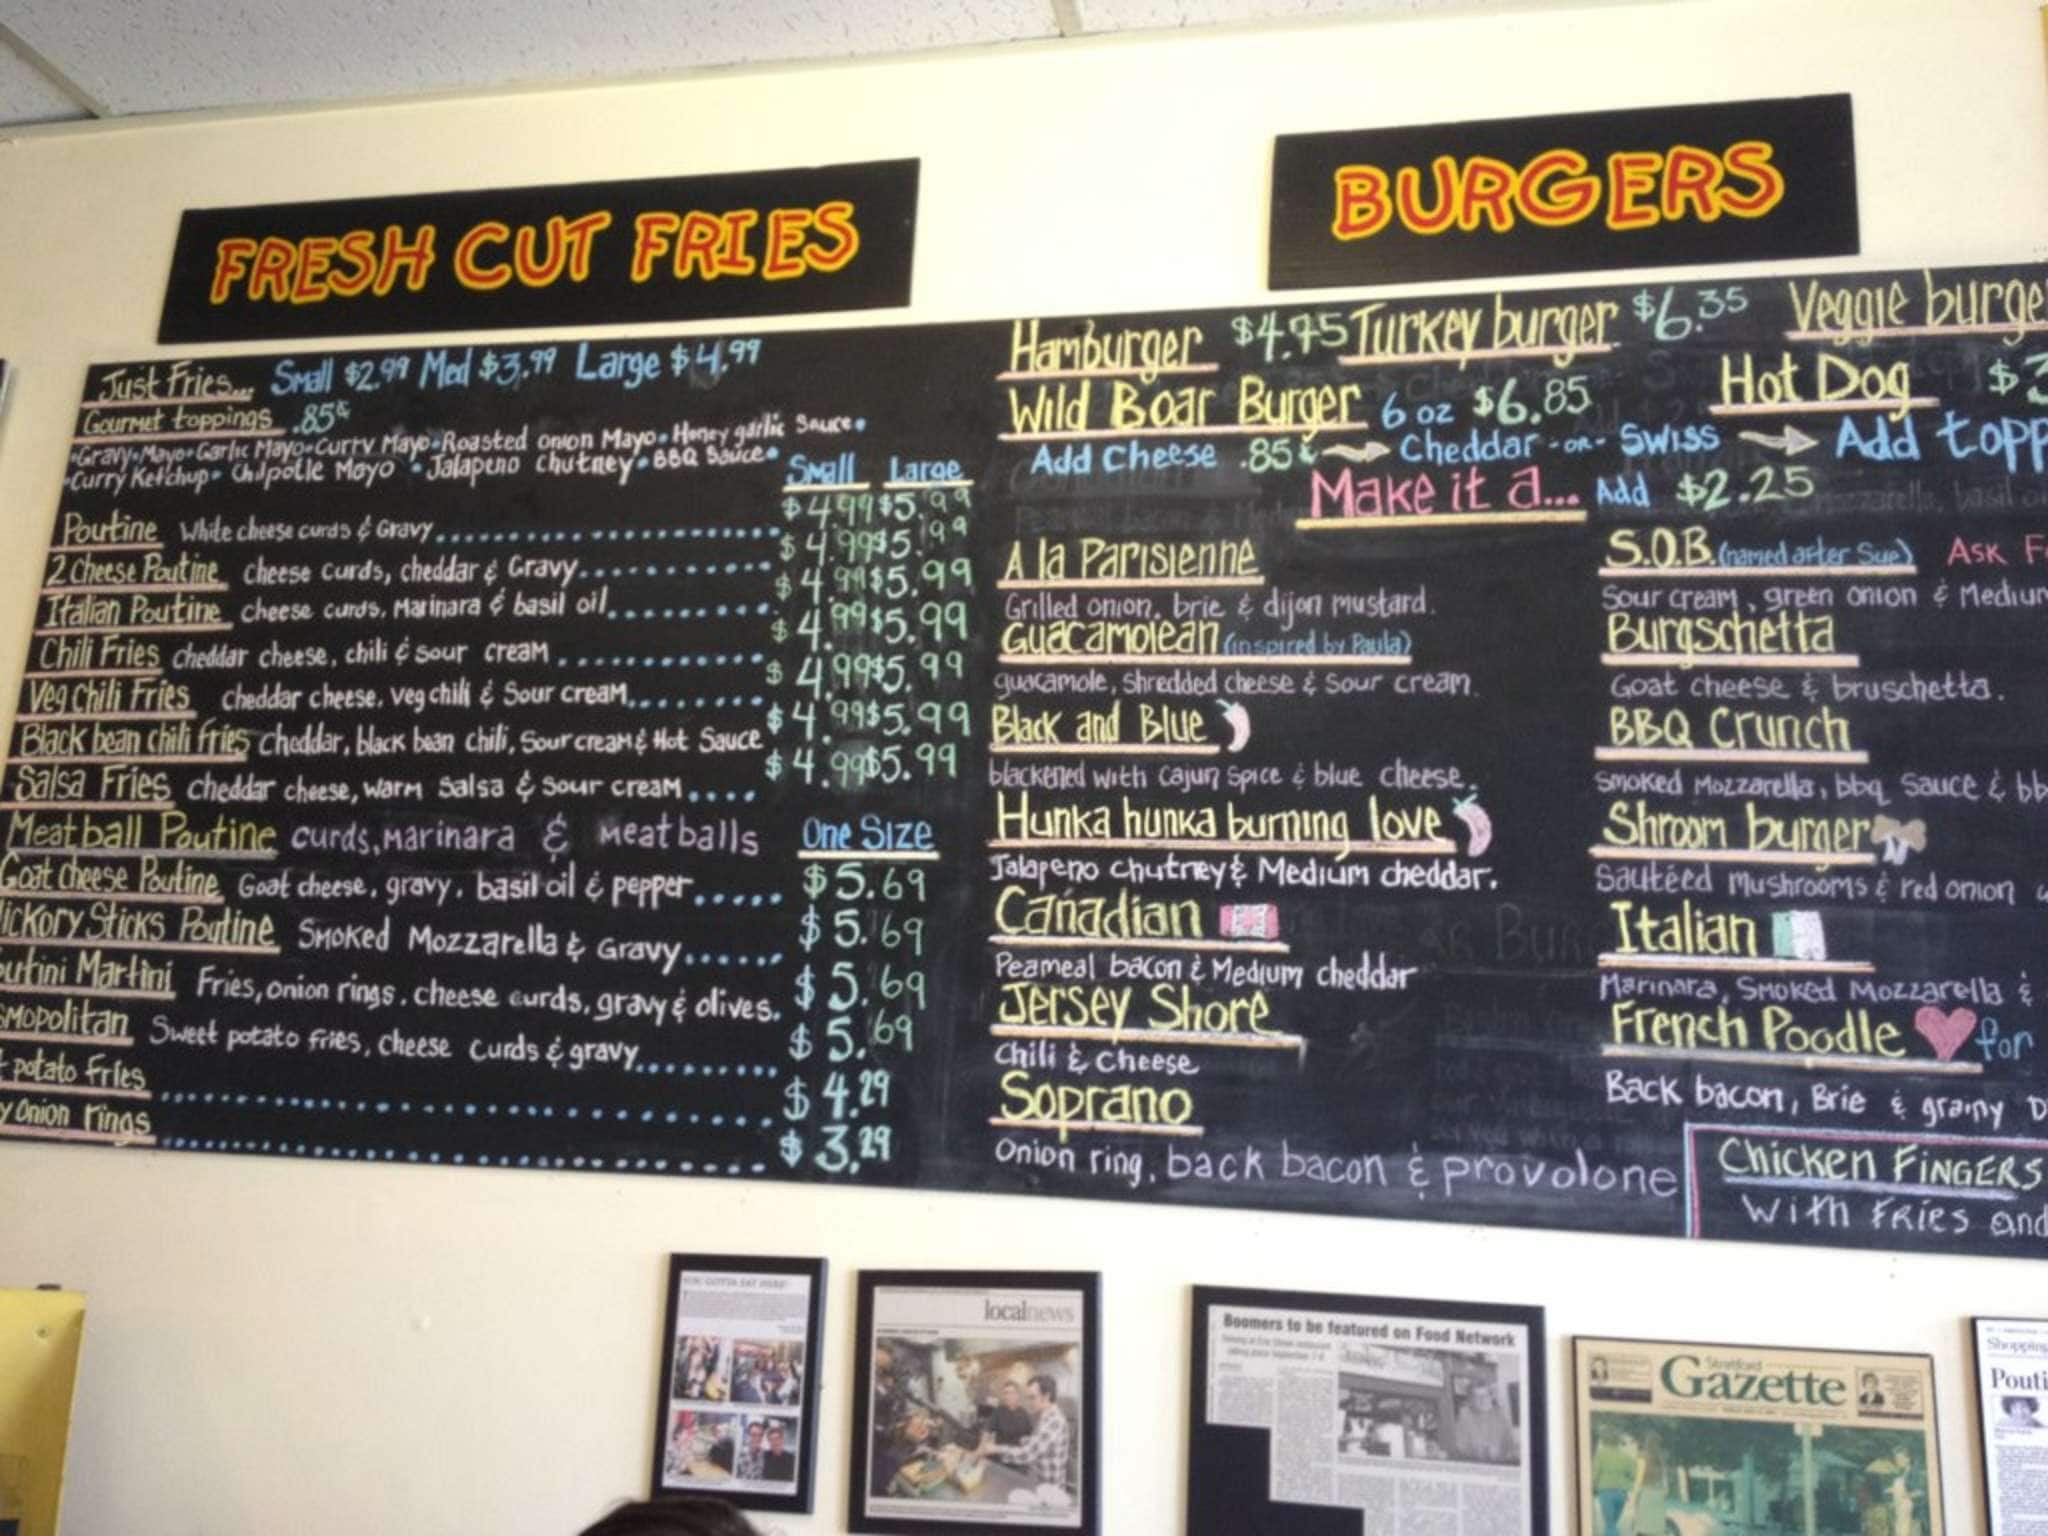 FRESH CUT FRIES
Just Fries... Small $2.99 Med $3.99 Large $4.99
Gourmet toppings .85¢
•Gravy•Mayo•Garlic Mayo•Curry Mayo•Roasted onion Mayo•Honey garlic Sauce•
•Curry Ketchup• Chilpotle Mayo •Jalapeno Chutney•BBQ Sauce•
Small Large
Poutine White cheese curds & Gravy $4.99 $5.99
2 Cheese Poutine Cheese curds, cheddar & Gravy $4.99 $5.99
Italian Poutine cheese curds, Marinara & basil oil $4.99 $5.99
Chili Fries cheddar cheese, chili & sour cream $4.99 $5.99
Veg Chili Fries cheddar cheese, veg chili & Sour cream $4.99 $5.99
Black bean chili fries Cheddar, black bean chili, Sour cream & Hot Sauce $4.99 $5.99
Salsa Fries cheddar cheese, warm Salsa & Sour cream $4.99 $5.99
Meatball Poutine curds, Marinara & Meatballs
One Size
Goat cheese Poutine Goat cheese, gravy, basil oil & pepper $5.69
ickory Sticks Poutine Smoked Mozzarella & Gravy $5.69
outini Martini Fries, onion rings, cheese curds, gravy & olives. $5.69
smopolitan Sweet potato fries, Cheese Curds & gravy $5.69
potato fries $4.29
y Onion rings $3.29
BURGERS
Hamburger $4.75 Turkey burger $6.35 Veggie burge
Wild Boar Burger 6 oz $6.85 Hot Dog $3
Add Cheese .85¢ Cheddar -or- Swiss Add topp
Make it a... Add $2.25
A la Parisienne
Grilled onion, brie & dijon mustard.
Guacamolean (inspired by Paula)
guacamole, shredded cheese & sour cream.
Black and Blue
blackened with Cajun spice & blue cheese.
Hunka hunka burning love
Jalapeno chutney & Medium cheddar.
Canadian
Peameal bacon & Medium cheddar
Jersey Shore
Chili & Cheese
Soprano
Onion ring, back bacon & provolone
S.O.B. (named after Sue) Ask F
Sour cream, green onion & Medium
Burgschetta
Goat cheese & bruschetta.
BBQ Crunch
Smoked Mozzarella, bbq sauce & bb
Shroom burger
Sautéed Mushrooms & red onion
Italian
Marinara, Smoked Mozzarella &
French Poodle for
Back bacon, Brie & grainy D
Chicken Fingers
With Fries and
YOU GOTTA EAT HERE!
localnews
Boomers to be featured on Food Network
Stratford
Gazette
Shopping
Pouti